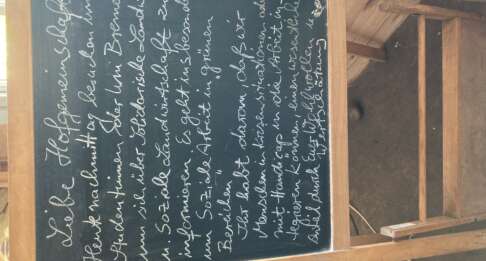 Liebe Hofgemeinschaft
Heute nachmittag besuchen
Studentinnen der Uni Breme
um sich über Solidarische Landw
u. Soziale Landwirtschaft zu
informieren. Es geht ins besond
um Soziale Arbeit in grünen
Bereichen"
Ihr habt daran, daß wir
Menschen in Krisensituationen ode
mit Handicap in die Arbeit in-
tegrieren können, einen wesentliche
Anteil durch Euer Wohlwollen u
Wertschätzung